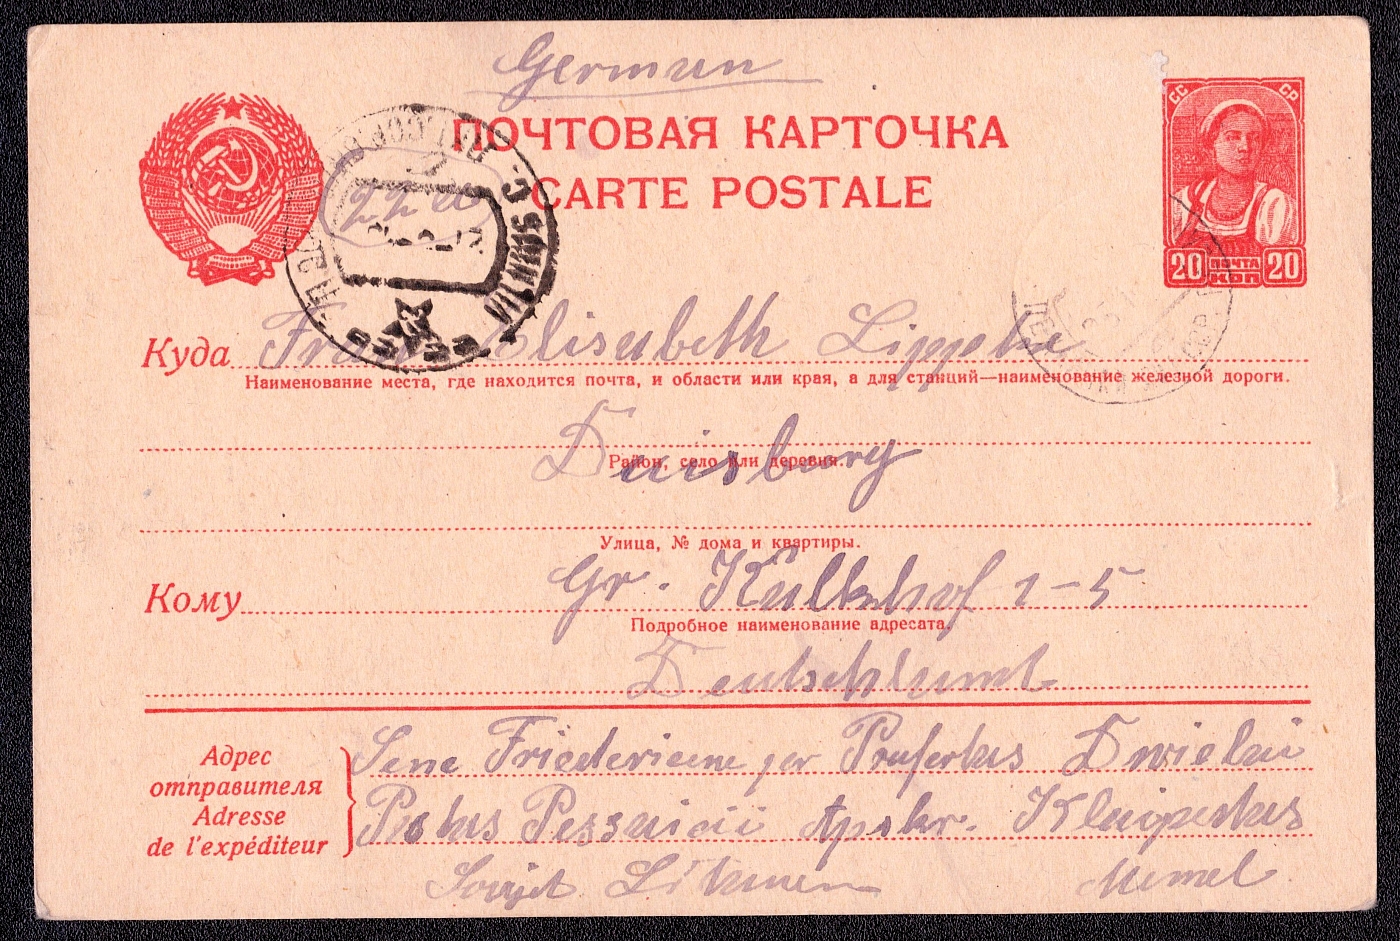 German
ПОЧТОВАЯ КАРТОЧКА
CARTE POSTALE
СС СР
20 ПОЧТА КОП 20
Куда Frau Elisabeth Lippke
Наименование места, где находится почта, и области или края, а для станций—наименование железной дороги.
Duisburg
Район, село или деревня.
Улица, № дома и квартиры.
Кому Gr. Kalkhof 1-5
Подробное наименование адресата.
Deutschland
Адрес отправителя
Adresse de l'expéditeur
Friederieene per
Apskr. Klaipedas
Sowjet Litauen Memel